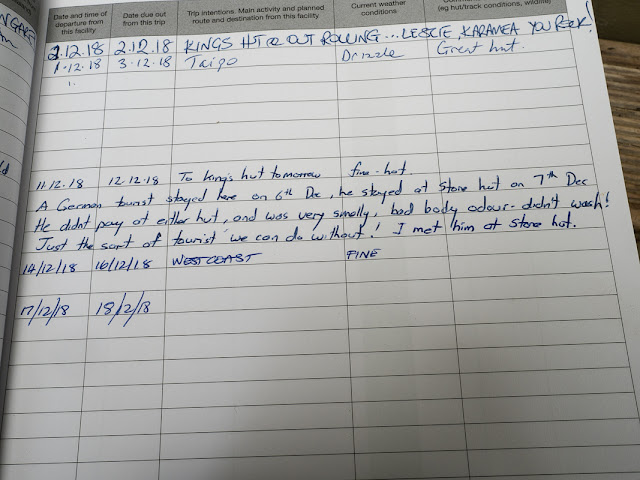 NGAGE
Date and time of departure from this facility
Date due out from this trip
Trip intentions. Main activity and planned route and destination from this facility
Current weather conditions
(eg hut/track conditions, wildlife)
2.12.18 2.12.18 KINGS HT OUT ROLLING... LESLIE, KARAMEA YOU ROCK!
1.12.18 3.12.18 Taipo Drizzle Great hut.
11.12.18 12.12.18 To King's hut tomorrow fine-hot.
A German tourist stayed here on 6th Dec, he stayed at Stone hut on 7th Dec
He didnt pay at either hut, and was very smelly, bad body odour - didn't wash!
Just the sort of tourist we can do without! I met him at Stone hut.
14/12/18 16/12/18 WEST COAST FINE
17/12/18 18/2/18